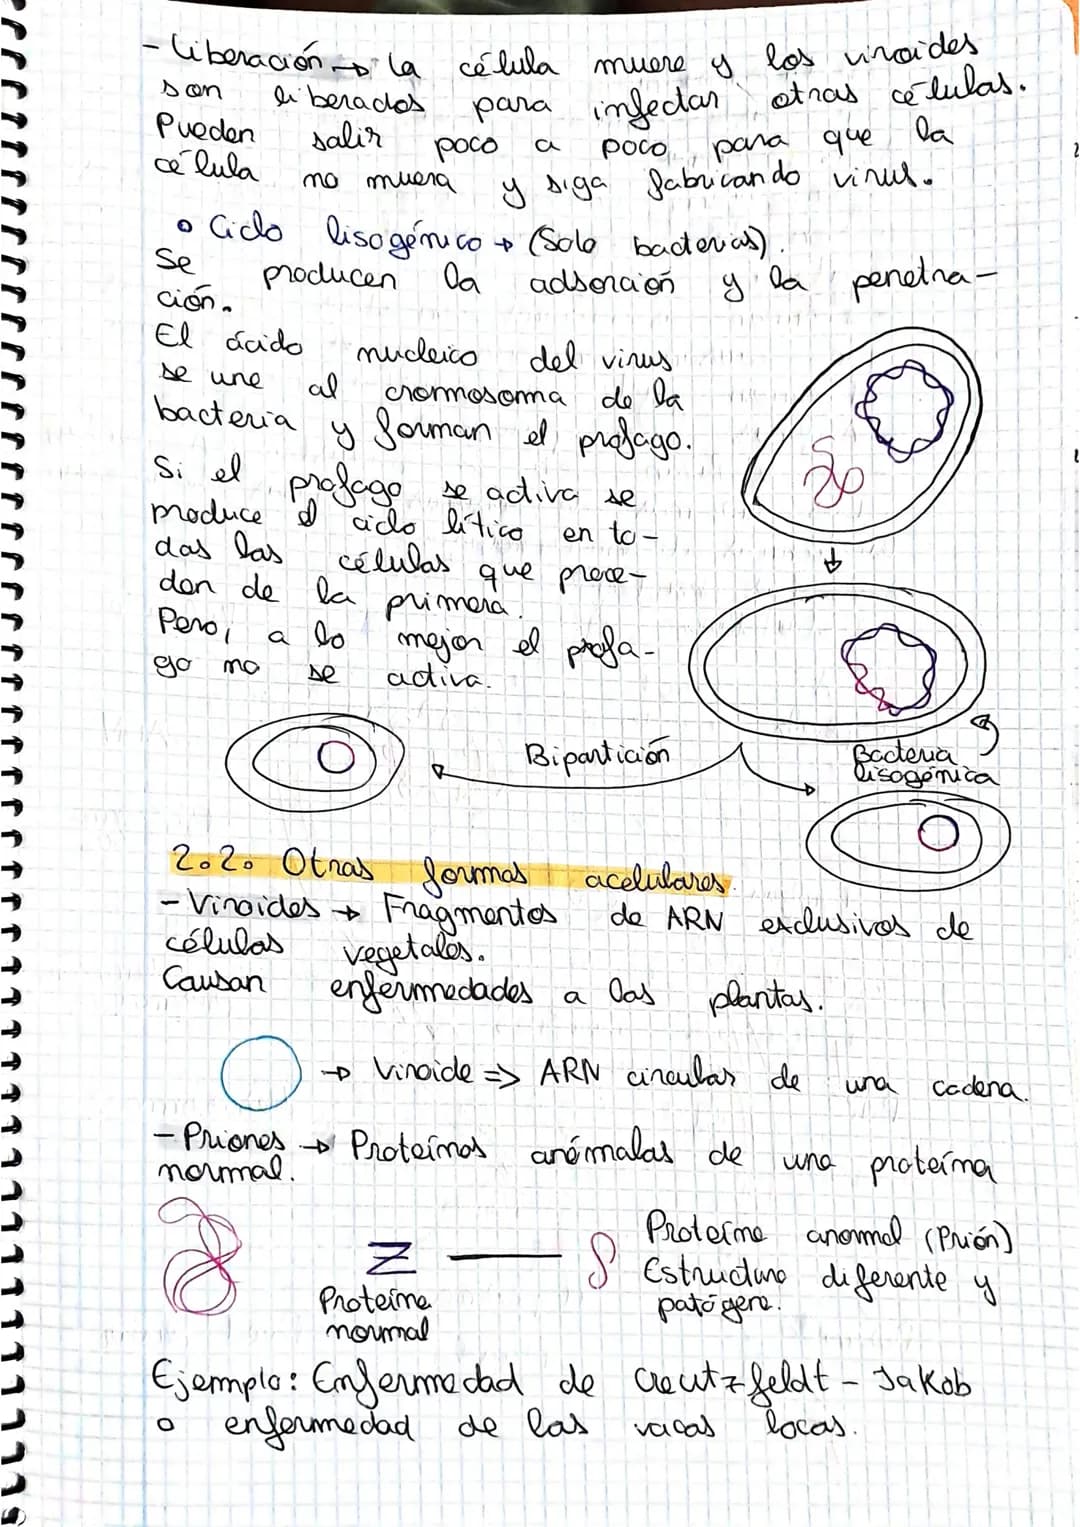 - Liberación → La célula muere y los viroides
son liberados para infectar otras células.
Pueden salir poco a poco para que la
célula no muera y siga fabricando virus.
• Ciclo lisogénico → (Solo bacterias).
Se producen la adsorción y la penetra-
ción.
El ácido nucleico del virus
se une al cromosoma de la
bacteria y forman el profago.
Si el profago se activa se
produce el ciclo lítico en to-
das las células que proce-
den de la primera.
Pero, a lo mejor el profa-
go no se activa.
Bipartición
Bacteria
lisogénica
2.2. Otras formas acelulares.
- Viroides → Fragmentos de ARN exclusivos de
células vegetales.
Causan enfermedades a las plantas.
→ Viroide => ARN circular de una cadena.
- Priones → Proteínas anómalas de una proteína
normal.
Proteína
normal
Proteína anormal (Prión)
Estructura diferente y
patógena.
Ejemplo: Enfermedad de Creutzfeldt - Jakob
o enfermedad de las vacas locas.